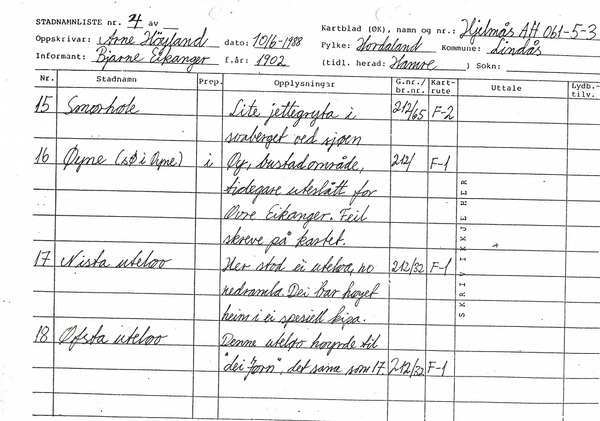 STADNAMNLISTE nr. 4 av
Kartblad (ØK), namn og nr.: Hjelmås AH 061-5-3
Oppskrivar: Arne Höyland dato: 10/6-1988
Fylke: Hordaland Kommune: Lindås
Informant: Bjarne Eikanger f.år: 1902
(tidl. herad: Hamre ) Sokn:
Nr. Stadnamn Prep. Opplysningar G.nr./ br.nr. Kart- rute Uttale Lydb.- tilv.
15 Smørhole Lite jettegryta i 212/65 F-2
svaberget ved sjøen
16 Øyne (sø i Øyne) i Øy, bustadområde, 212/ F-1
tidegare uteslått for
Øvre Eikanger. Feil
skreve på kartet.
17 Nista uteløo Her stod ei uteløa, no 212/32 F-1
nedramla. Dei bar høyet
heim i ei spesiell kipa.
18 Øfsta uteløo Denne uteløo høyrde til
"dei Jorn", det sama som 17. 212/32 F-1
SKRIV IKKJE HER